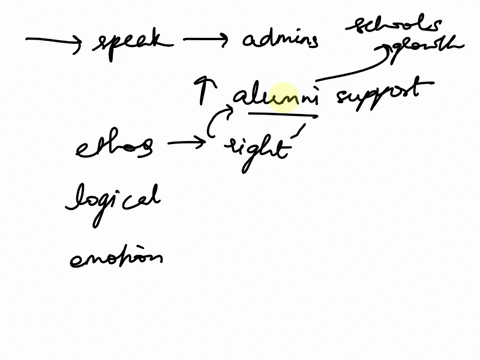 → speak → admins
schools
growth
↑ alunni support
ethos → right
logical
emotion